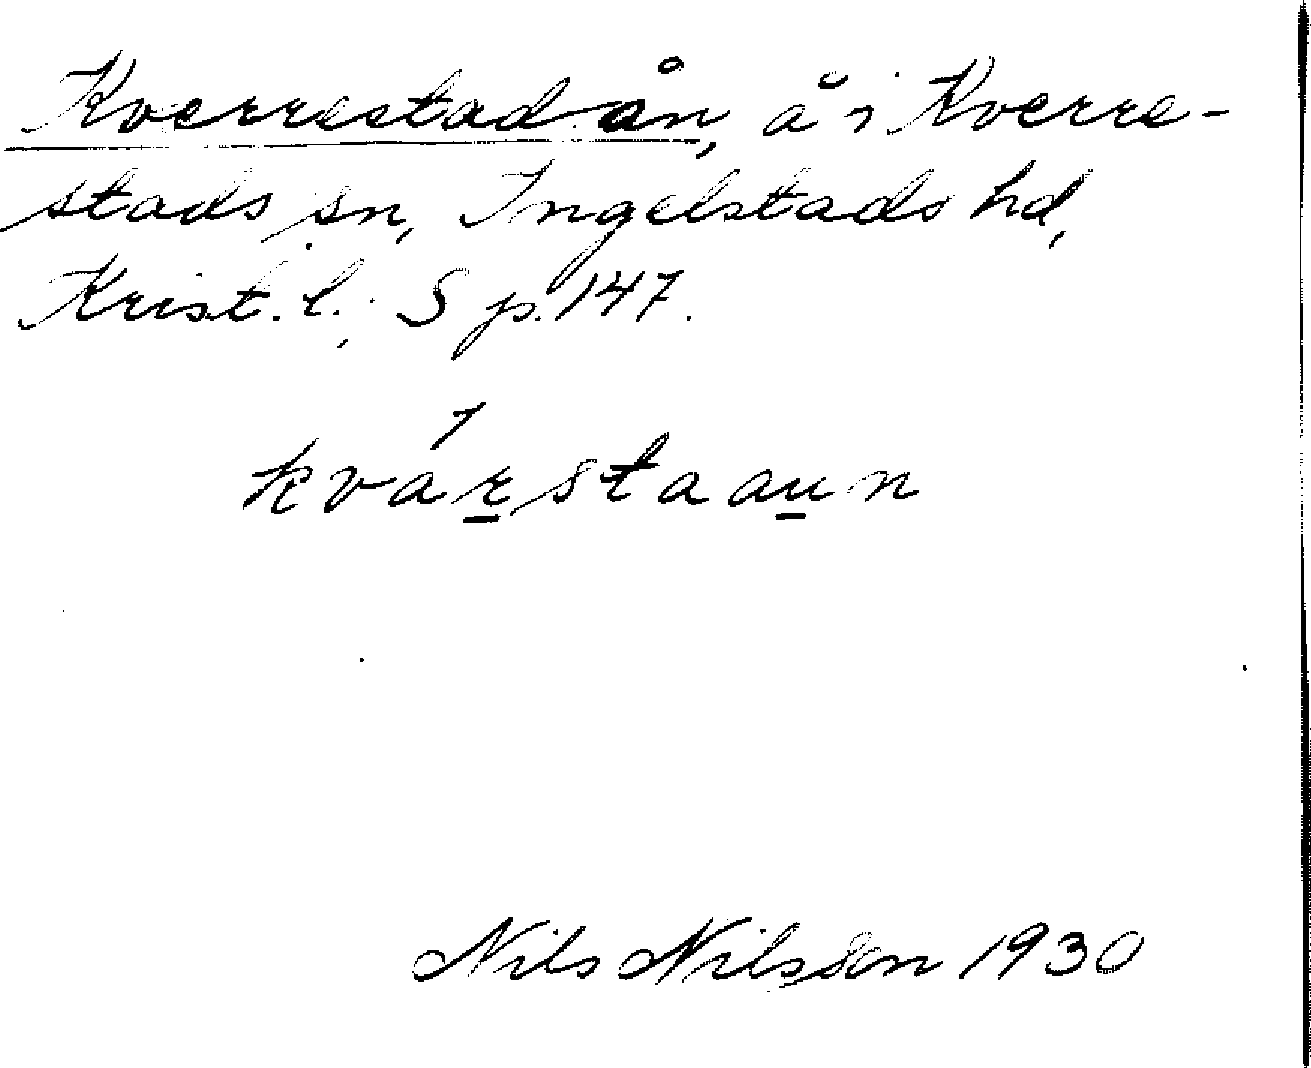 Kverrestadån, å i Kverre-
stads sn, Ingelstads hd,
Krist. l.; S p. 147.
kvárstaaun
Nils Nilsson 1930